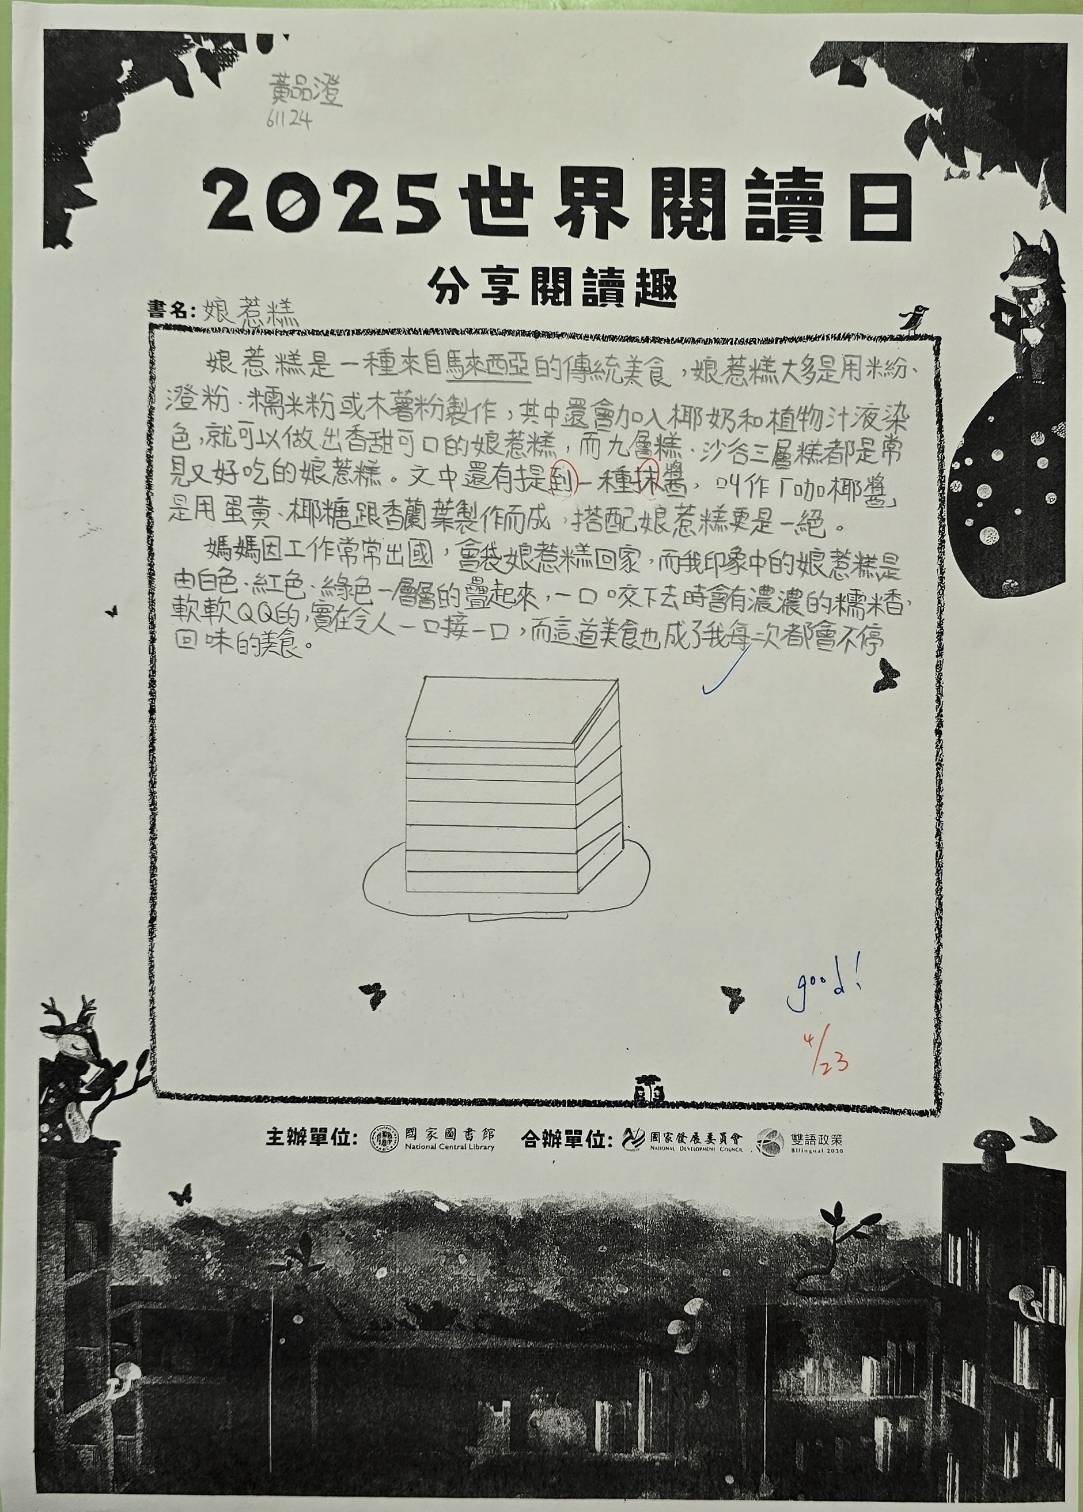 黃品澄
61124
2025世界閱讀日
分享閱讀趣
書名:娘惹糕
娘惹糕是一種來自馬來西亞的傳統美食,娘惹糕大多是用米粉、
澄粉、糯米粉或木薯粉製作,其中還會加入椰奶和植物汁液染
色,就可以做出香甜可口的娘惹糕,而九層糕、沙谷三層糕都是常
見又好吃的娘惹糕。文中還有提到一種抹醬,叫作「咖椰醬」
是用蛋黃、椰糖跟香蘭葉製作而成,搭配娘惹糕更是一絕。
媽媽因工作常常出國,會袋娘惹糕回家,而我印象中的娘惹糕是
由白色、紅色、綠色一層層的疊起來,一口咬下去時會有濃濃的糯米香,
軟軟QQ的,實在令人一口接一口,而這道美食也成了我每次都會不停
回味的美食。
good!
4/23
主辦單位: 國家圖書館 National Central Library 合辦單位: 國家發展委員會 NATIONAL DEVELOPMENT COUNCIL 雙語政策 Bilingual 2030